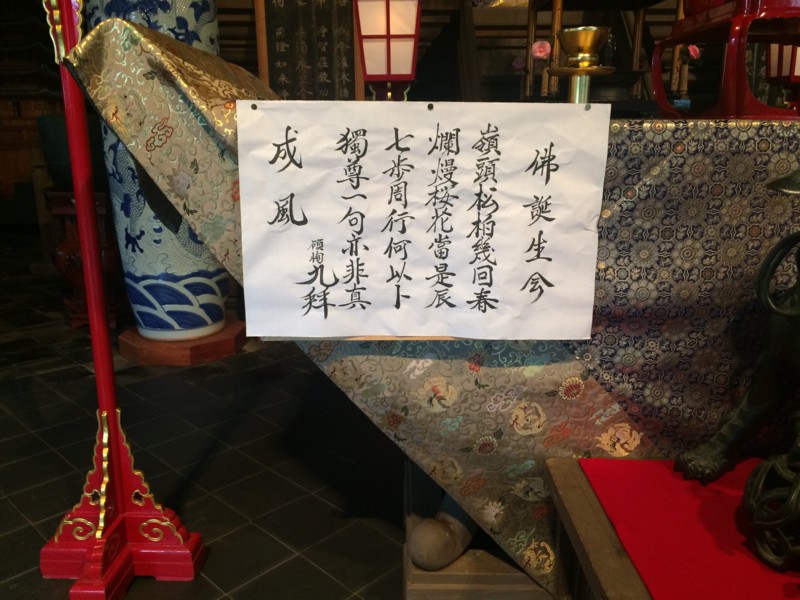 佛誕生会
嶺頭松柏幾回春
爛熳桜花當是辰
七歩周行何以卜
獨尊一句亦非真
成風
頓拘九拜